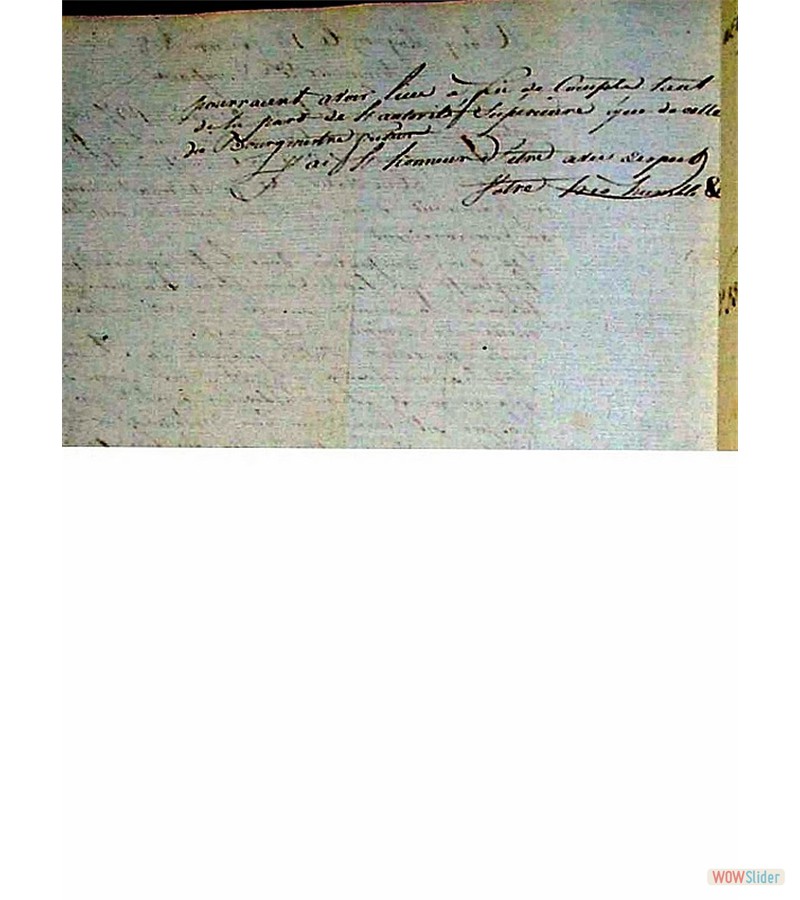 pourraient avoir lieu à fin de Compte tant
de la part de l'autorité Supérieure que de celle
du Bourgmestre
J'ai l'honneur d'être avec respect
Votre très humble &
WOWSlider